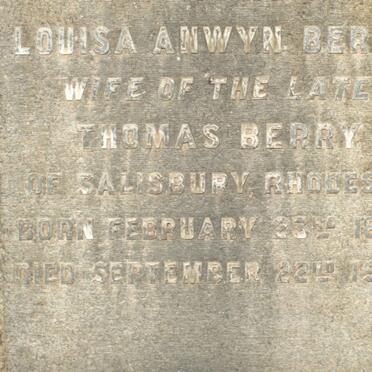 LOUISA ANWYN BER
WIFE OF THE LATE
THOMAS BERRY
OF SALISBURY, RHODES
BORN FEBRUARY
DIED SEPTEMBER 22ND